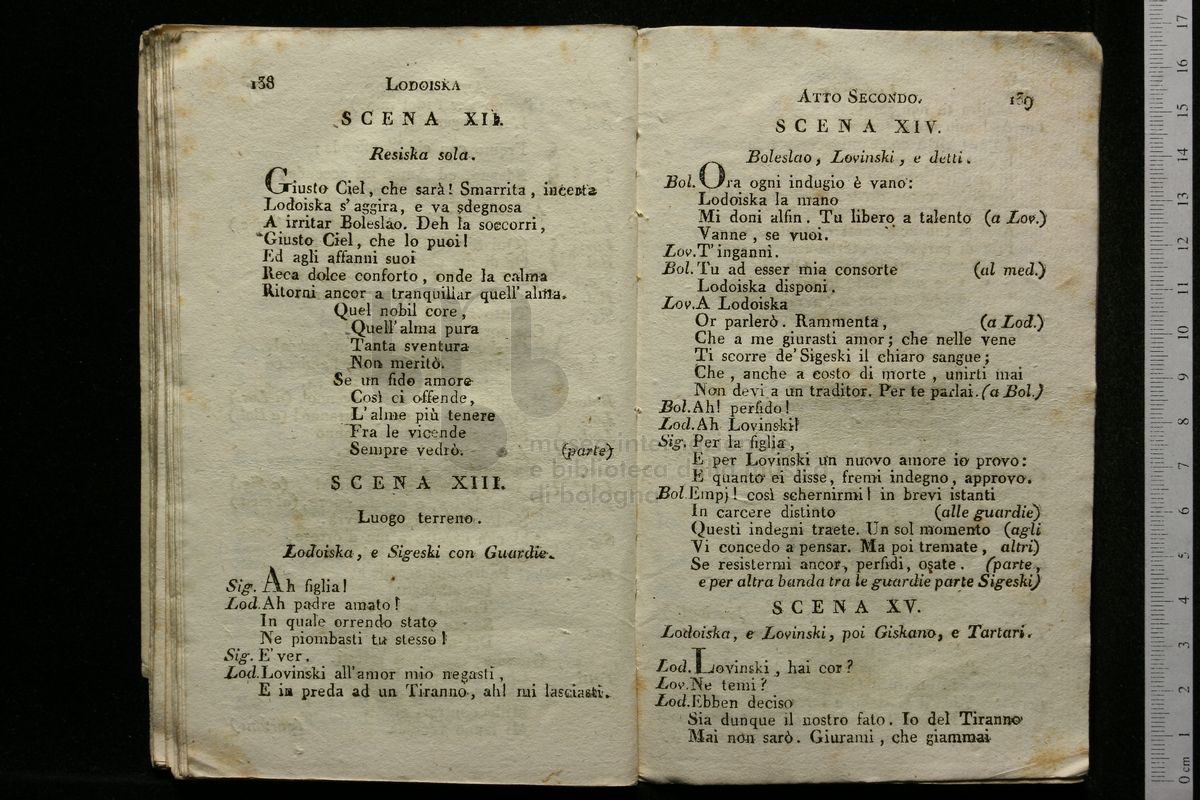 138
LODOISKA
SCENA XII.
Resiska sola.
Giusto Ciel, che sarà! Smarrita, incerta
Lodoiska s'aggira, e va sdegnosa
A irritar Boleslao. Deh la soccorri,
Giusto Ciel, che lo puoi!
Ed agli affanni suoi
Reca dolce conforto, onde la calma
Ritorni ancor a tranquillar quell'alma.
Quel nobil core,
Quell'alma pura
Tanta sventura
Non meritò.
Se un fido amore
Così ci offende,
L'alme più tenere
Fra le vicende
Sempre vedrò. (parte)
SCENA XIII.
Luogo terreno.
Lodoiska, e Sigeski con Guardie.
Sig. Ah figlia!
Lod. Ah padre amato!
In quale orrendo stato
Ne piombasti tu stesso!
Sig. E' ver.
Lod. Lovinski all'amor mio negasti,
E in preda ad un Tiranno, ah! mi lasciasti.
ATTO SECONDO. 139
SCENA XIV.
Boleslao, Lovinski, e detti.
Bol. Ora ogni indugio è vano:
Lodoiska la mano
Mi doni alfin. Tu libero a talento (a Lov.)
Vanne, se vuoi.
Lov. T'inganni.
Bol. Tu ad esser mia consorte (al med.)
Lodoiska disponi.
Lov. A Lodoiska
Or parlerò. Rammenta, (a Lod.)
Che a me giurasti amor; che nelle vene
Ti scorre de' Sigeski il chiaro sangue;
Che, anche a costo di morte, unirti mai
Non devi a un traditor. Per te parlai. (a Bol.)
Bol. Ah! perfido!
Lod. Ah Lovinski!
Sig. Per la figlia,
E per Lovinski un nuovo amore io provo:
E quanto ei disse, fremi indegno, approvo.
Bol. Empj! così schernirmi! in brevi istanti
In carcere distinto (alle guardie)
Questi indegni traete. Un sol momento (agli
Vi concedo a pensar. Ma poi tremate, altri)
Se resistermi ancor, perfidi, osate. (parte,
e per altra banda tra le guardie parte Sigeski)
SCENA XV.
Lodoiska, e Lovinski, poi Giskano, e Tartari.
Lod. Lovinski, hai cor?
Lov. Ne temi?
Lod. Ebben deciso
Sia dunque il nostro fato. Io del Tiranno
Mai non sarò. Giurami, che giammai
museo internazionale
e biblioteca della musica
di bologna
0 cm 1 2 3 4 5 6 7 8 9 10 11 12 13 14 15 16 17